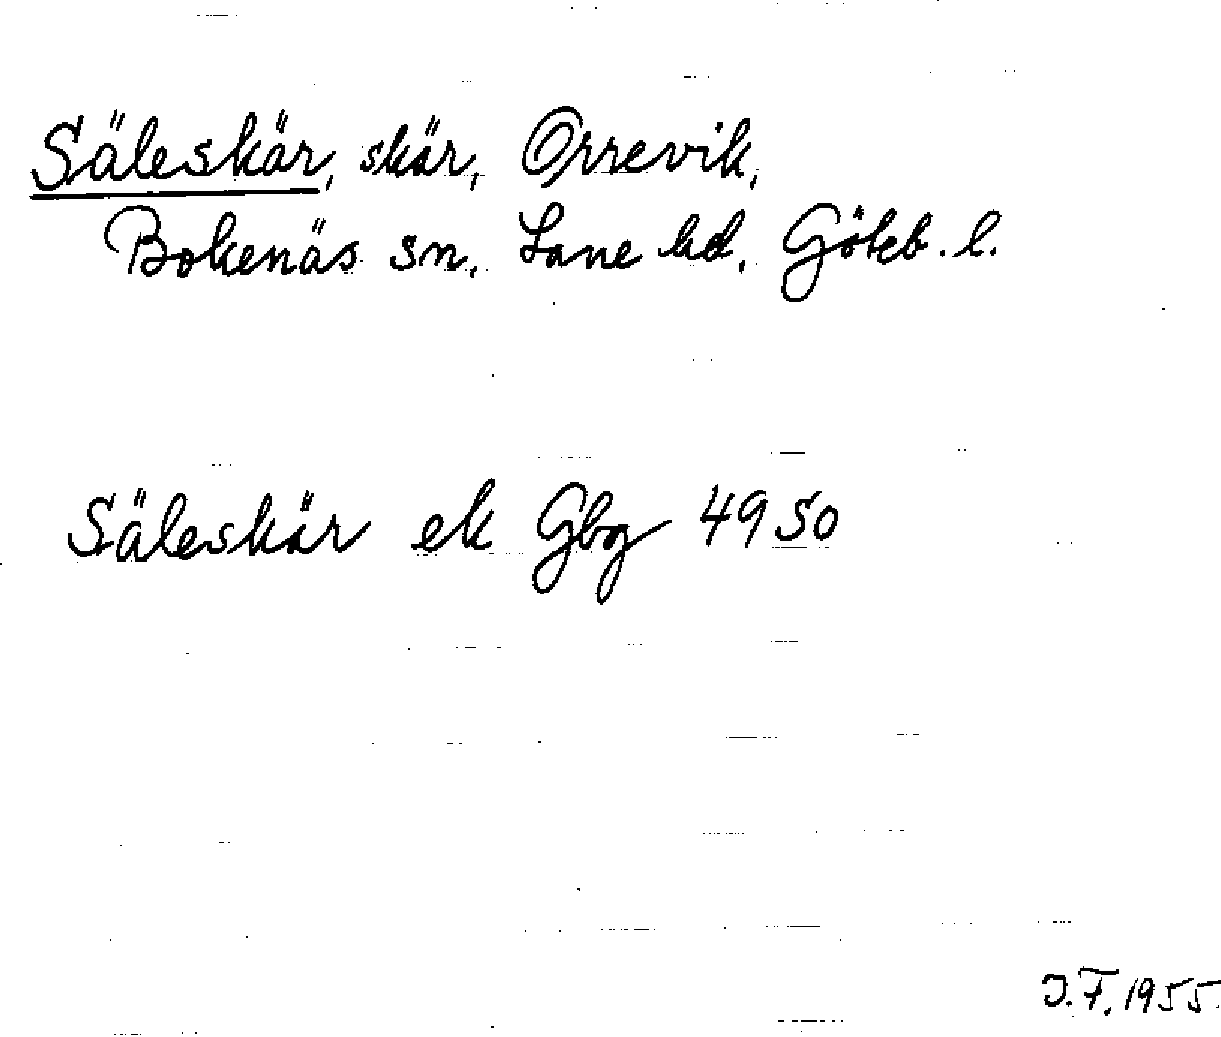 Säleskär, skär, Orrevik,
Bokenäs sn, Lane hd, Göteb. l.
Säleskär ek Gbg 4950
J.F. 1955.